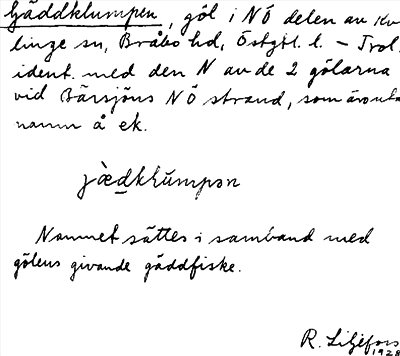 Gäddklumpen, göl i NÖ delen av Kv
linge sn, Bråbo hd, Östgtl. l. – Trol.
ident. med den N av de 2 gölarna
vid Bärsjöns NÖ strand, som äro uta
namn å ek.
jæ̀dklumpən
Namnet sättes i samband med
gölens givande gäddfiske.
R. Liljefors
1928